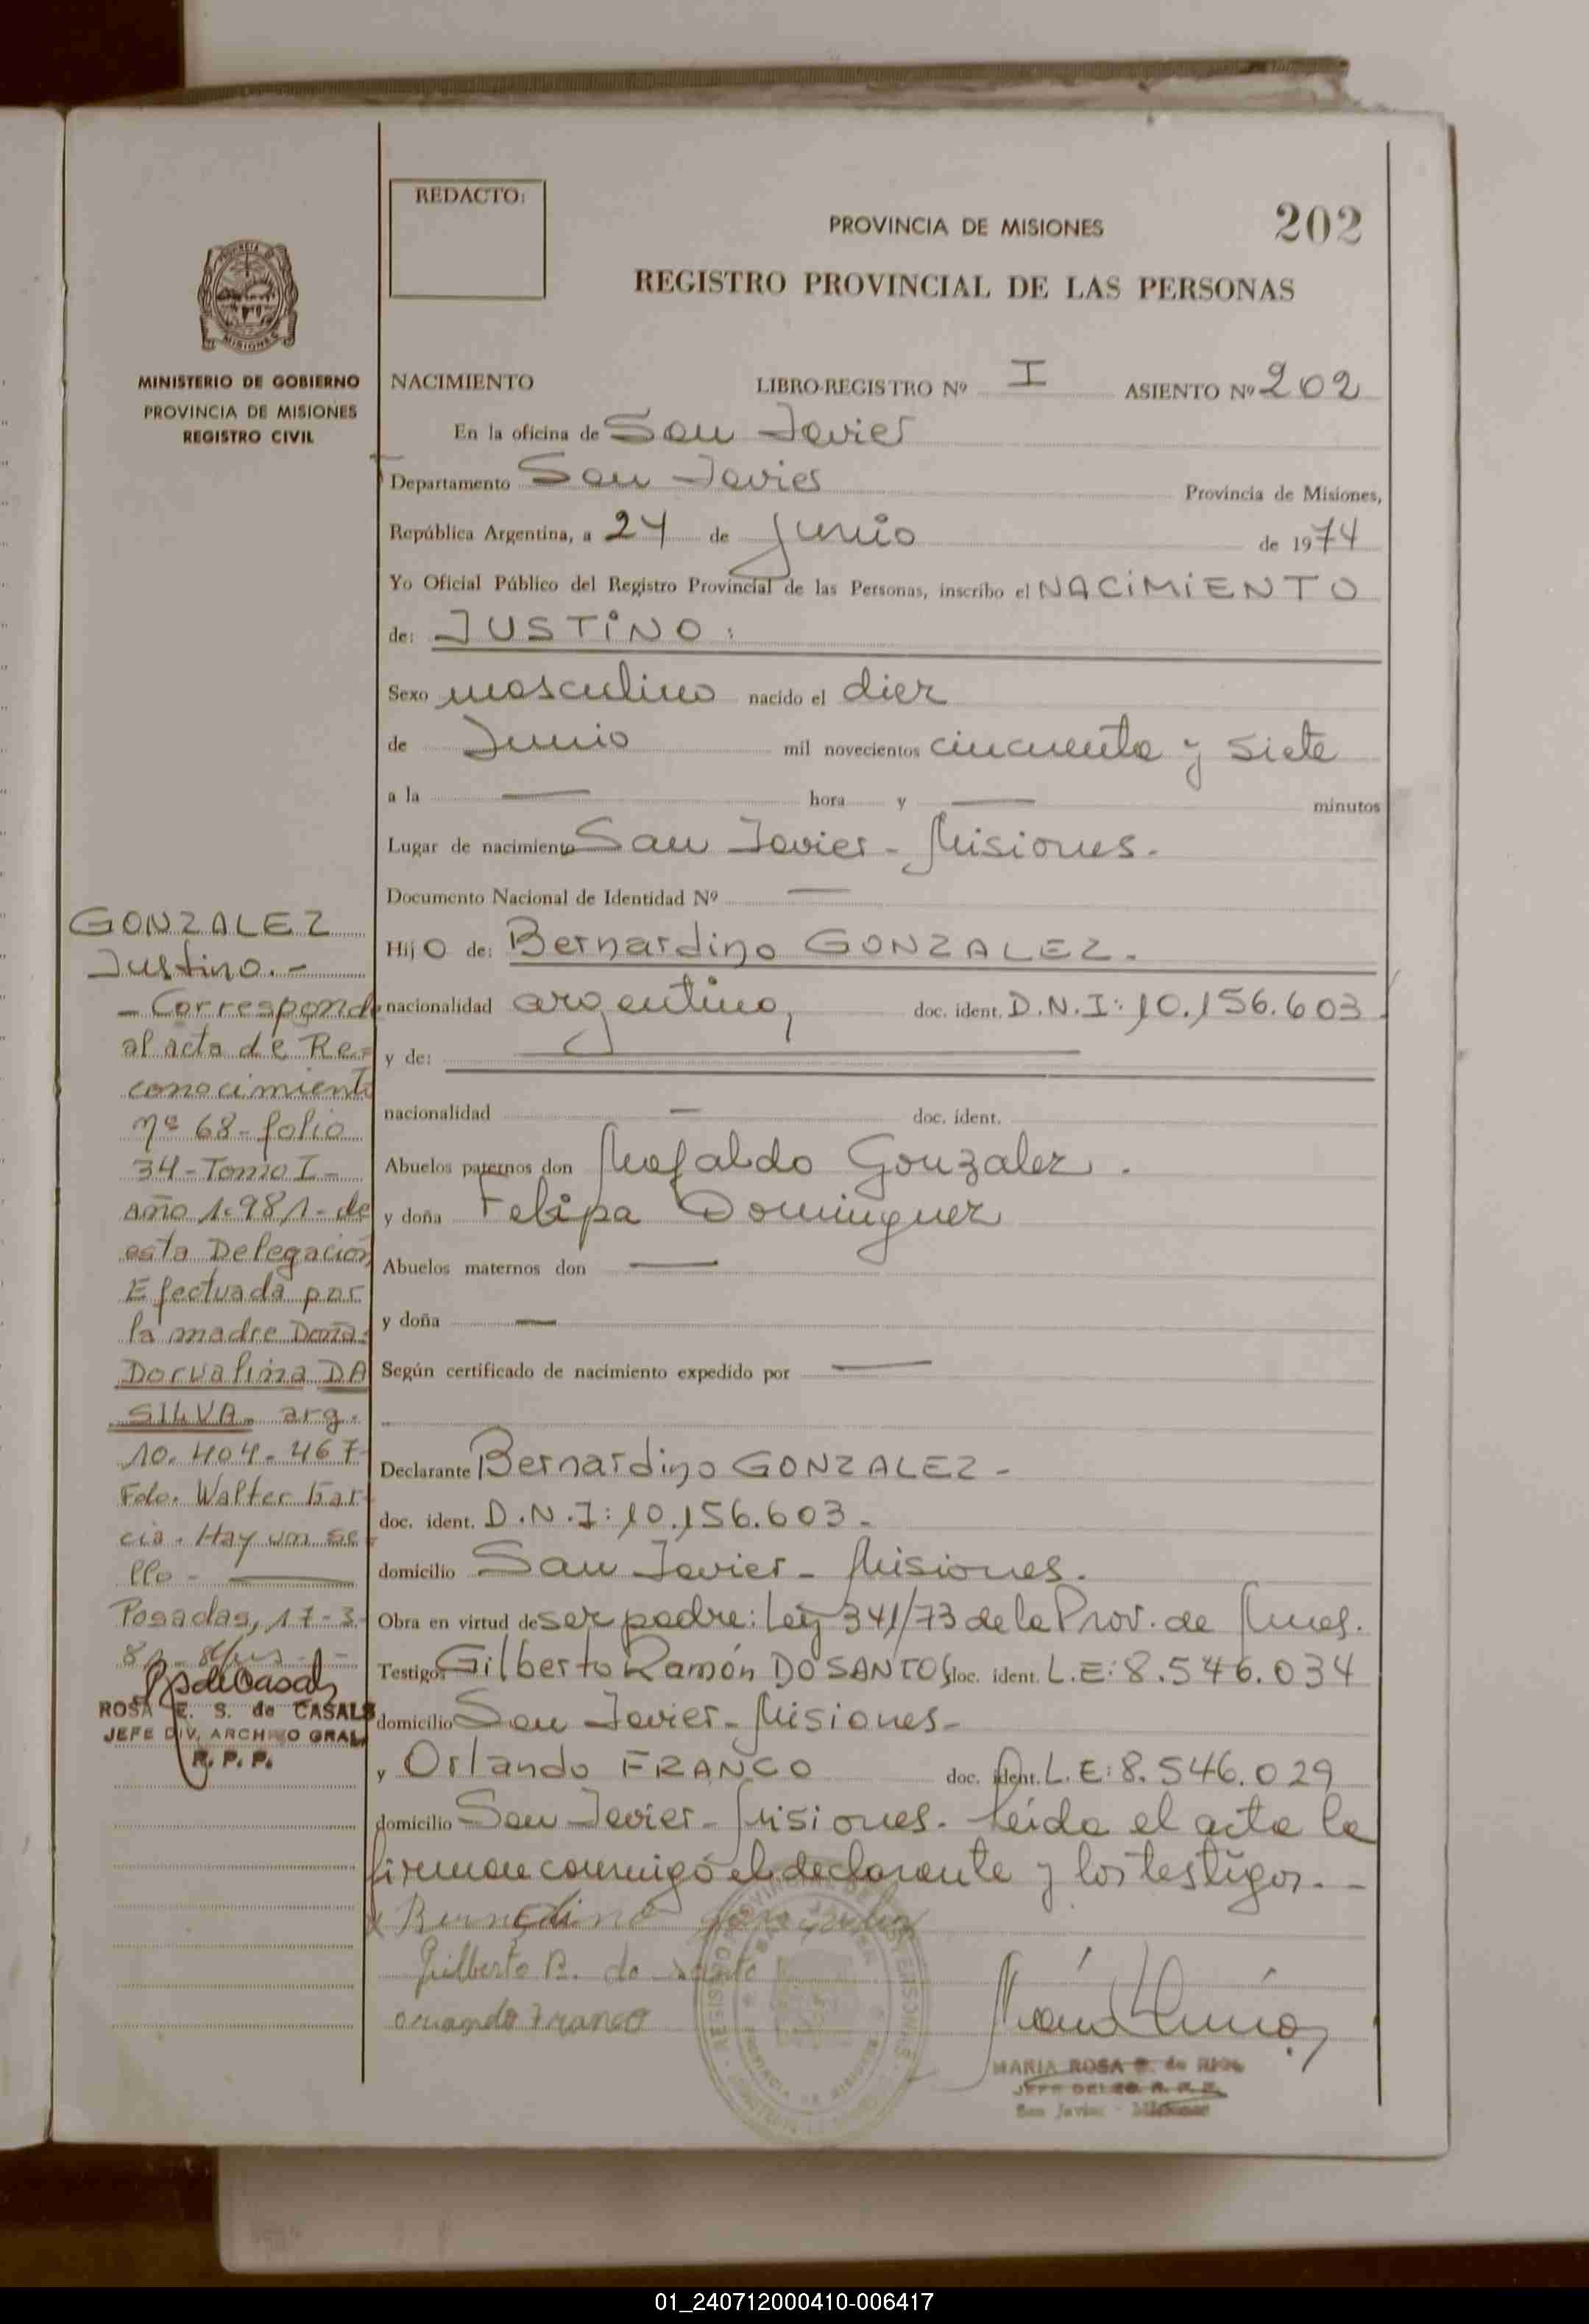 REDACTO:
PROVINCIA DE MISIONES
202
REGISTRO PROVINCIAL DE LAS PERSONAS
MISIONES
MINISTERIO DE GOBIERNO
PROVINCIA DE MISIONES
REGISTRO CIVIL
NACIMIENTO LIBRO-REGISTRO Nº I ASIENTO Nº 202
En la oficina de San Javier
Departamento San Javier Provincia de Misiones,
República Argentina, a 24 de junio de 1974
Yo Oficial Público del Registro Provincial de las Personas, inscribo el NACIMIENTO
de: JUSTINO:
Sexo masculino nacido el diez
de Junio mil novecientos cincuenta y siete
a la — hora y — minutos
Lugar de nacimiento San Javier - Misiones.
Documento Nacional de Identidad Nº —
Hijo de: Bernardino GONZALEZ.
nacionalidad argentino, doc. ident. D.N.I: 10.156.603
y de: —
nacionalidad — doc. ident.
Abuelos paternos don Mafaldo Gonzalez.
y doña Felipa Dominguez
Abuelos maternos don —
y doña —
Según certificado de nacimiento expedido por —
Declarante Bernardino GONZALEZ -
doc. ident. D.N.I: 10.156.603 -
domicilio San Javier - Misiones.
Obra en virtud de ser padre: Ley 341/73 de la Prov. de Mnes.
Testigos Gilberto Ramón DO SANTOS doc. ident. L.E: 8.546.034
domicilio San Javier - Misiones -
y Orlando FRANCO doc. ident. L.E: 8.546.029
domicilio San Javier - Misiones. Leida el acta la
firman conmigo el declarante y los testigos. -
Gilberto R. do Santo
Orlando Franco
MARIA ROSA de RIOS
JEFE DELEG. R. P. P.
San Javier - Misiones
GONZALEZ
Justino. -
- Corresponde
al acta de Re=
conocimiento
nº 68 - folio
34 - Tomo I -
año 1.981 - de
esta Delegación
Efectuada por
la madre Doña:
Dorvalina DA
SILVA. arg.
10.404.467
Fdo. Walter Gar-
cia. Hay un se-
llo - —
Posadas, 17-3-
ROSA E. S. de CASALS
JEFE DIV. ARCHIVO GRAL.
R. P. P.
01_240712000410-006417